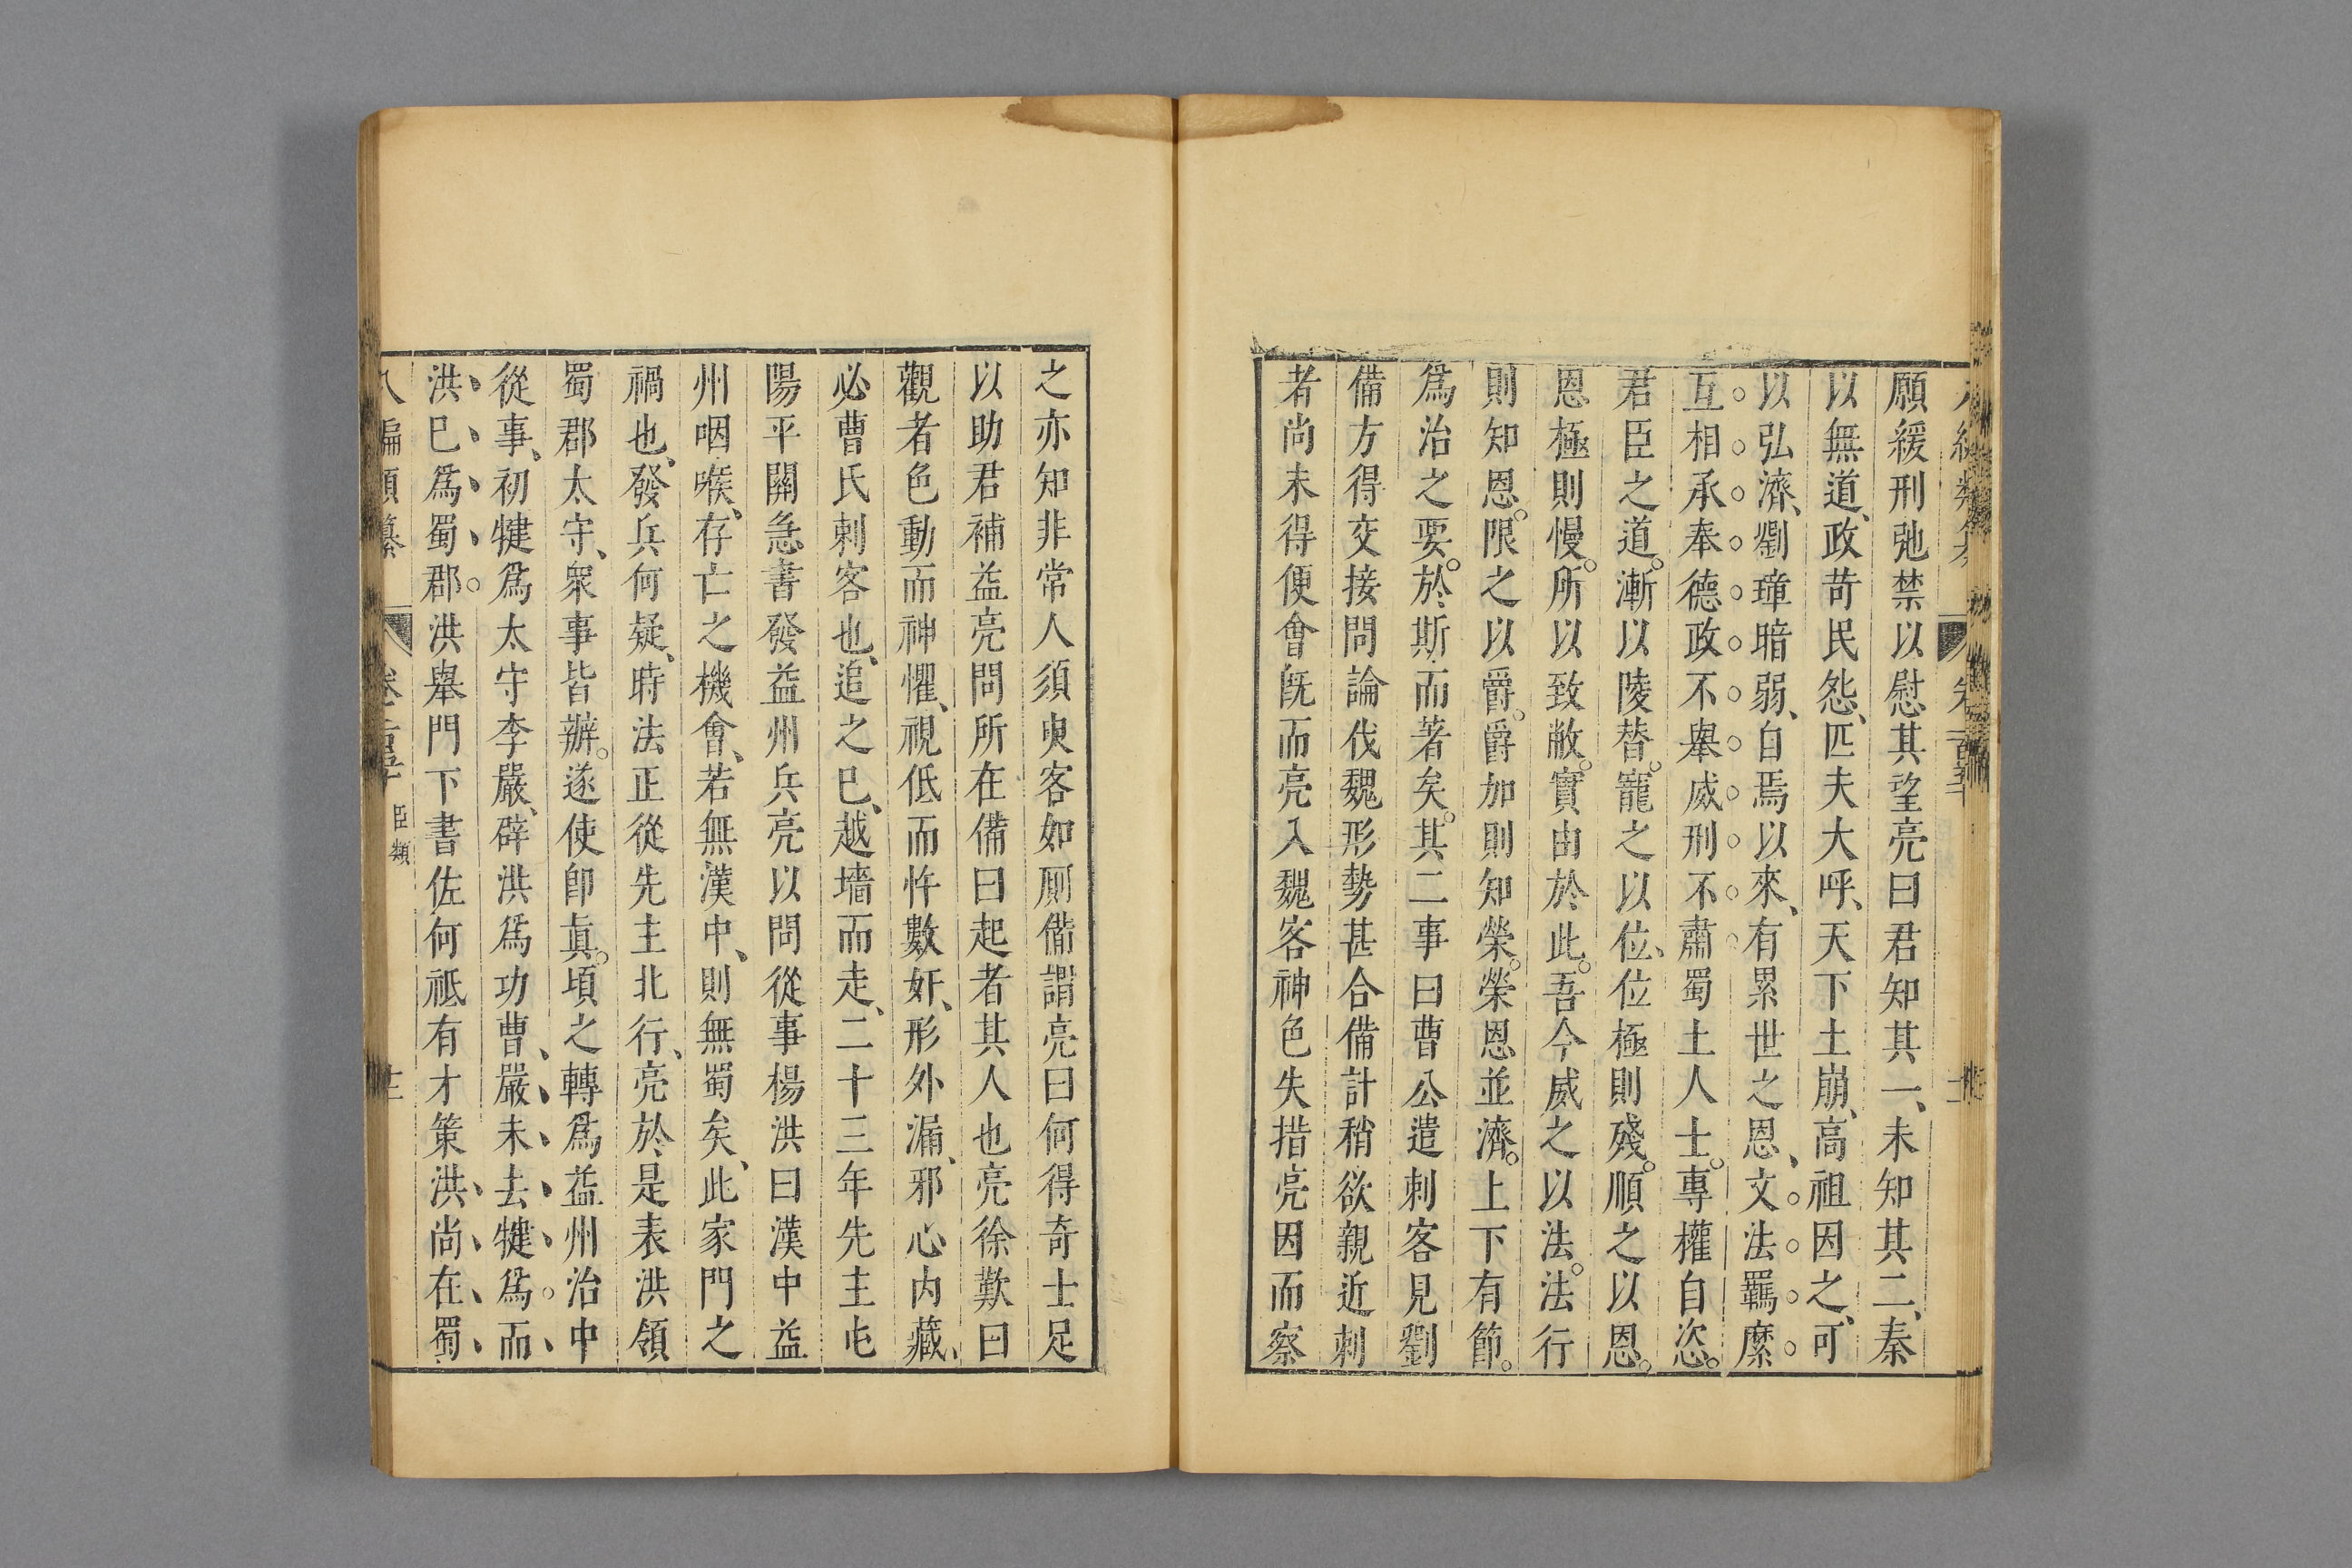 願緩刑弛禁以慰其望亮曰君知其一、未知其二、秦
以無道、政苛民怨、匹夫大呼、天下土崩、高祖因之、可
以弘濟、劉璋暗弱、自焉以來、有累世之恩、文法羈縻
互相承奉德政不舉威刑不肅蜀土人士。專權自恣。
君臣之道。漸以陵替。寵之以位、位極則殘。順之以恩。
恩極則慢。所以致敝。實由於此。吾今威之以法。法行
則知恩。限之以爵。爵加則知榮。榮恩並濟。上下有節。
爲治之要。於斯而著矣。其二事曰曹公遣刺客見劉
備方得交接問論伐魏形勢甚合備計稍欲親近刺
者尚未得便會旣而亮入魏客神色失措亮因而察
之亦知非常人須臾客如厠備謂亮曰何得奇士足
以助君補益亮問所在備曰起者其人也亮徐歎曰
觀者色動而神懼、視低而忤數奸、形外漏、邪心內藏、
必曹氏刺客也、追之巳、越墻而走、二十三年先主屯
陽平關急書發益州兵亮以問從事楊洪曰漢中益
州咽喉、存亡之機會、若無漢中、則無蜀矣、此家門之
禍也、發兵何疑、時法正從先主北行、亮於是表洪領
蜀郡太守、衆事皆辦。遂使卽眞。頃之轉爲益州治中
從事、初犍爲太守李嚴、辟洪爲功曹、嚴未去犍爲而
洪巳爲蜀郡。洪舉門下書佐何祗有才策洪尚在蜀
八編類纂 卷二百五十 臣類